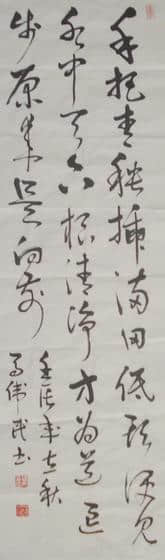 手把青秧插满田低头便见
水中天六根清净方为道退
步原来是向前
壬辰年立秋
马伟武书